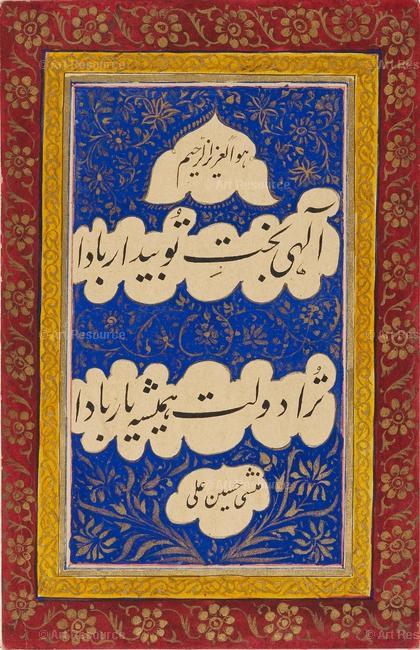 هو العزیز الرحیم
آلهی بختِ تُو بیدار بادا
تُرا دولت همیشیه یار بادا
منشی حسین علی
© Art Resource